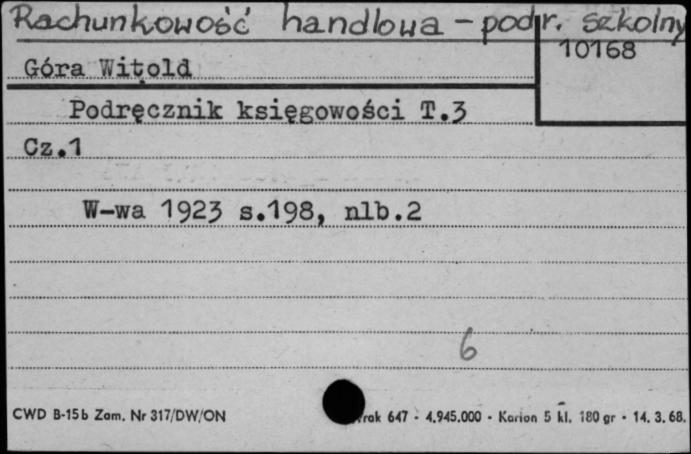 Rachunkowość handlowa - podr. szkolny
10168
Góra Witold
Podręcznik księgowości T.3
Cz.1
W-wa 1923 s.198, nlb.2
6
CWD B-15b Zam. Nr 317/DW/ON
647 - 4.945.000 - Karton 5 kl. 180 gr - 14. 3. 68.